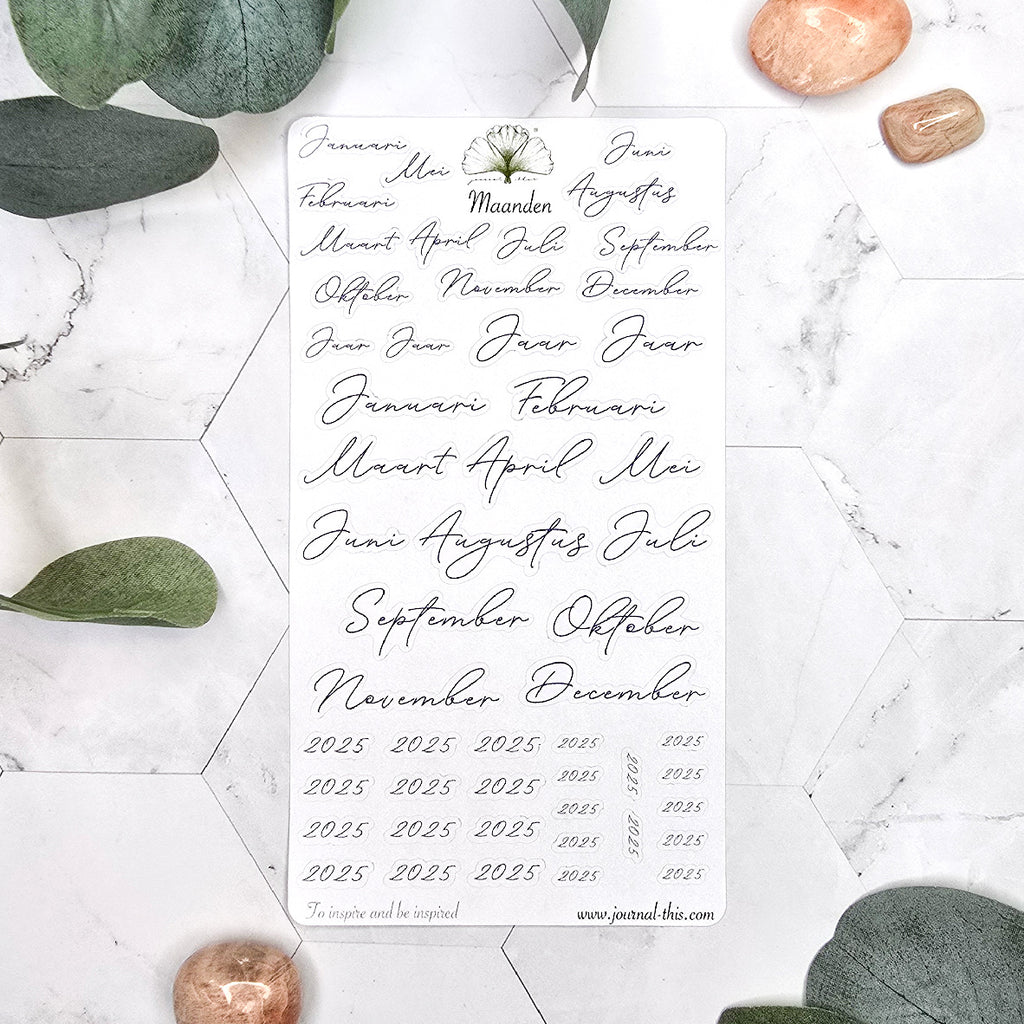 Januari Mei Juni
Februari Maanden Augustus
Maart April Juli September
Oktober November December
Jaar Jaar Jaar Jaar
Januari Februari
Maart April Mei
Juni Augustus Juli
September Oktober
November December
2025 2025 2025 2025 2025 2025
2025 2025 2025 2025 2025
2025 2025 2025 2025 2025 2025
2025 2025
2025 2025 2025 2025 2025
To inspire and be inspired www.journal-this.com